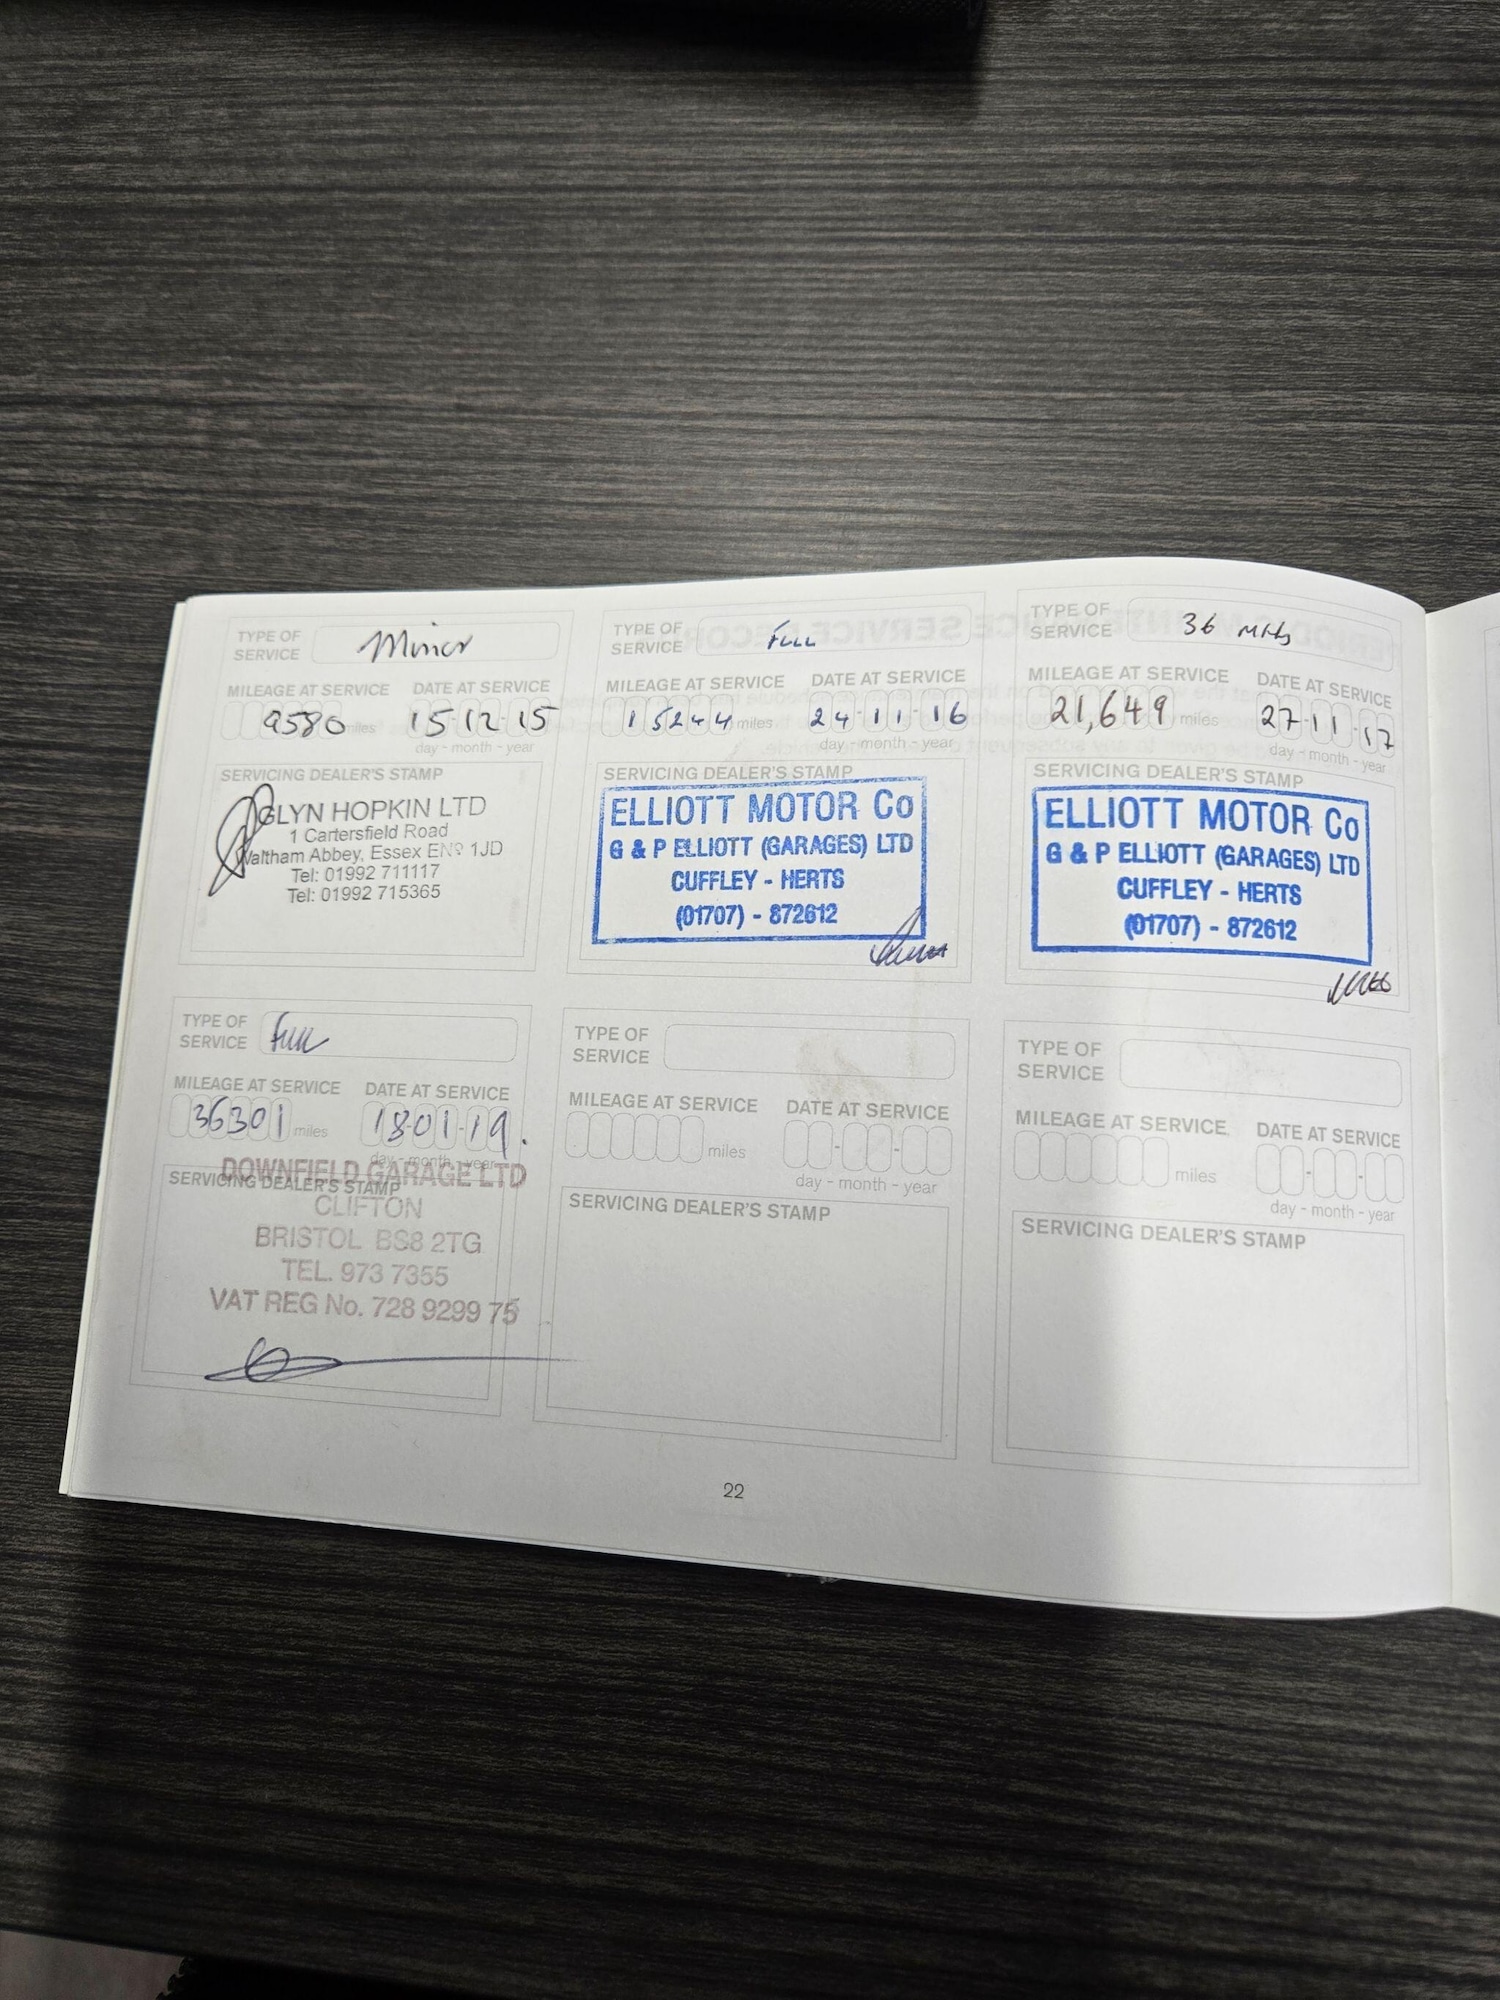 TYPE OF SERVICE Minor
MILEAGE AT SERVICE DATE AT SERVICE
9580 miles 15-12-15
day - month - year
SERVICING DEALER'S STAMP
GLYN HOPKIN LTD
1 Cartersfield Road
Waltham Abbey, Essex EN9 1JD
Tel: 01992 711117
Tel: 01992 715365
TYPE OF SERVICE FULL
MILEAGE AT SERVICE DATE AT SERVICE
15244 miles 24-11-16
day - month - year
SERVICING DEALER'S STAMP
ELLIOTT MOTOR Co
G & P ELLIOTT (GARAGES) LTD
CUFFLEY - HERTS
(01707) - 872612
TYPE OF SERVICE 36 Mths
MILEAGE AT SERVICE DATE AT SERVICE
21,649 miles 27-11-17
day - month - year
SERVICING DEALER'S STAMP
ELLIOTT MOTOR Co
G & P ELLIOTT (GARAGES) LTD
CUFFLEY - HERTS
(01707) - 872612
TYPE OF SERVICE Full
MILEAGE AT SERVICE DATE AT SERVICE
36301 miles 18-01-19.
day - month - year
SERVICING DEALER'S STAMP
DOWNFIELD GARAGE LTD
CLIFTON
BRISTOL BS8 2TG
TEL. 973 7355
VAT REG No. 728 9299 75
TYPE OF SERVICE
MILEAGE AT SERVICE DATE AT SERVICE
miles - -
day - month - year
SERVICING DEALER'S STAMP
TYPE OF SERVICE
MILEAGE AT SERVICE DATE AT SERVICE
miles - -
day - month - year
SERVICING DEALER'S STAMP
22